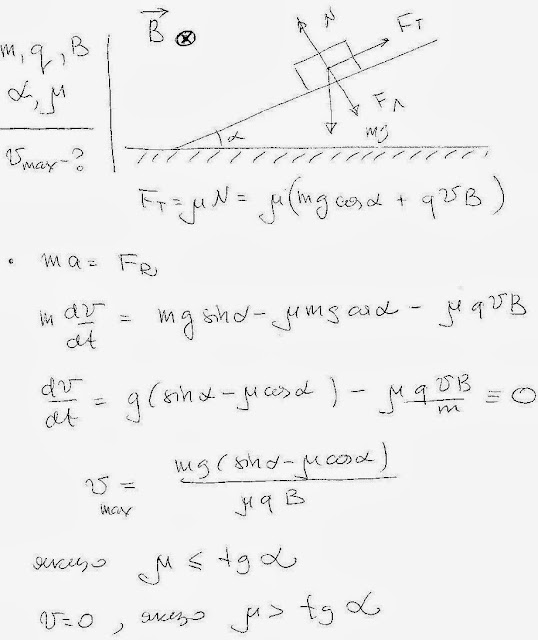 m, q, B
α, μ
v max - ?
B ⊗
N
F_T
F_Л
mg
α
F_T = μN = μ(mg cos α + qvB)
• ma = F_R
m dv/dt = mg sin α - μmg cos α - μqvB
dv/dt = g(sin α - μ cos α) - μ qvB/m ≡ 0
v max = mg(sin α - μ cos α) / μqB
якщо μ ≤ tg α
v=0, якщо μ > tg α